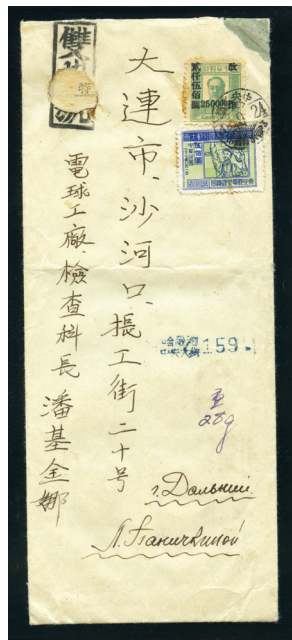 雙
大連市、沙河口、振工街二十号
電球工廠、檢查科長 潘基金娜
改作
貳仟伍佰圓
250000
伍佰圓
159
28g
г. Дальний.
Л. Паничкиной